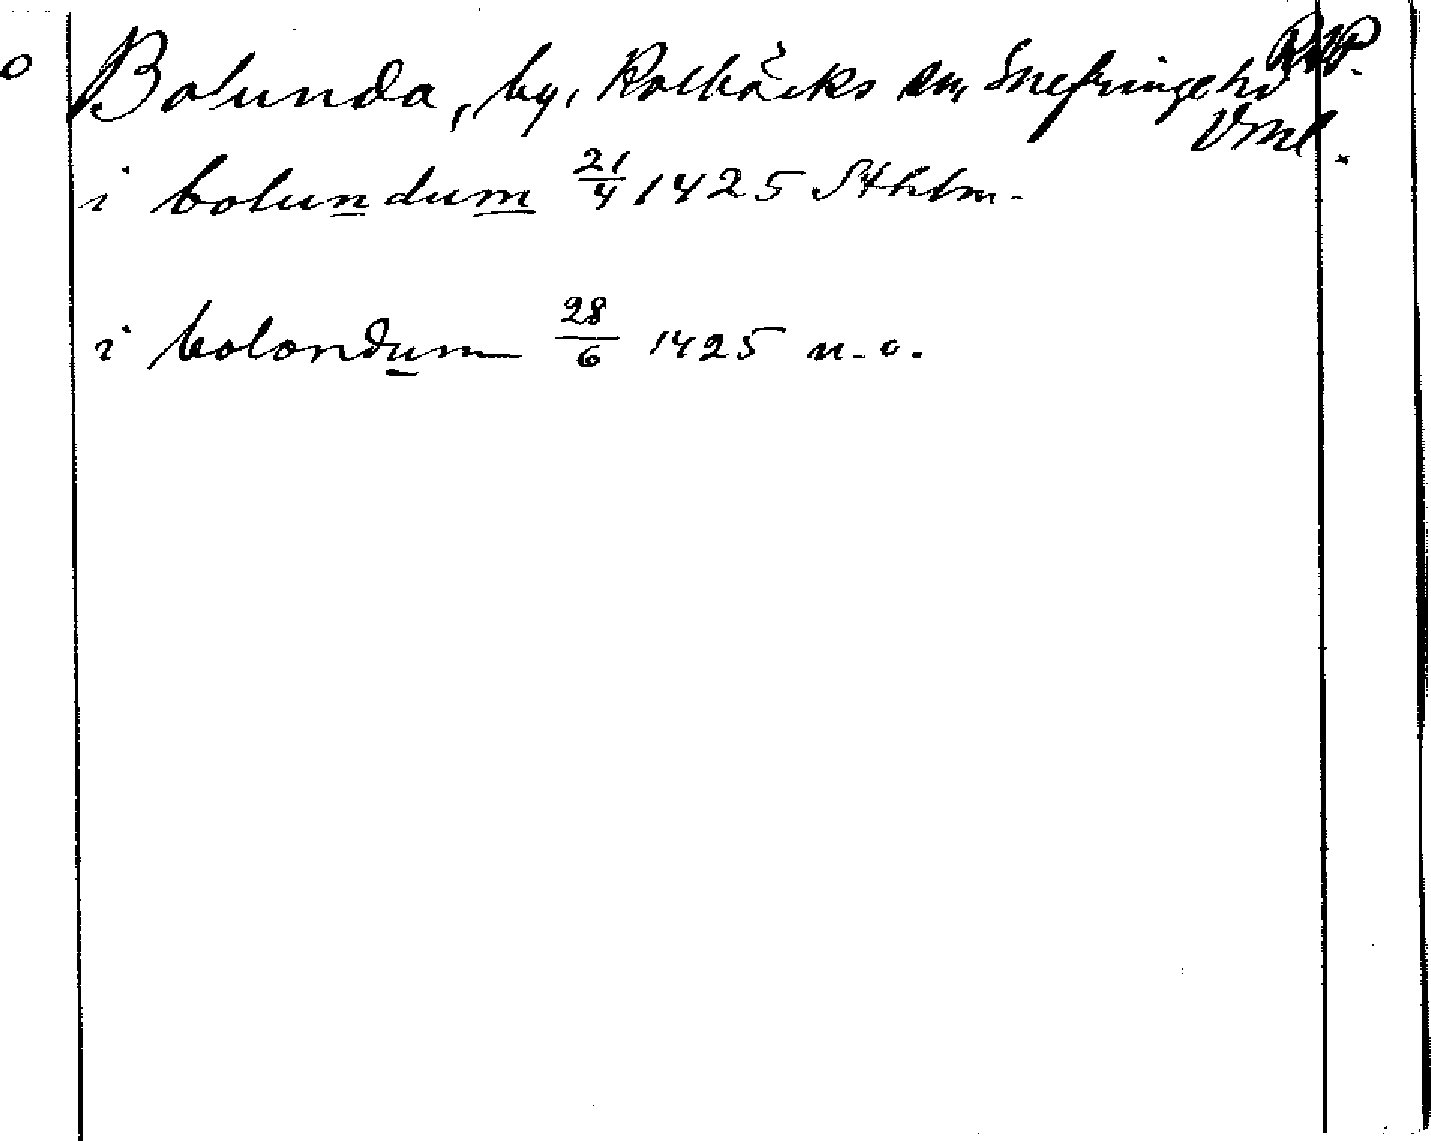 o Bolunda, by, Kolbäcks sn, Snefringe hd
Vml.
i bolundum 21/4 1425 Sthlm.
i bolondum 28/6 1425 n.o.